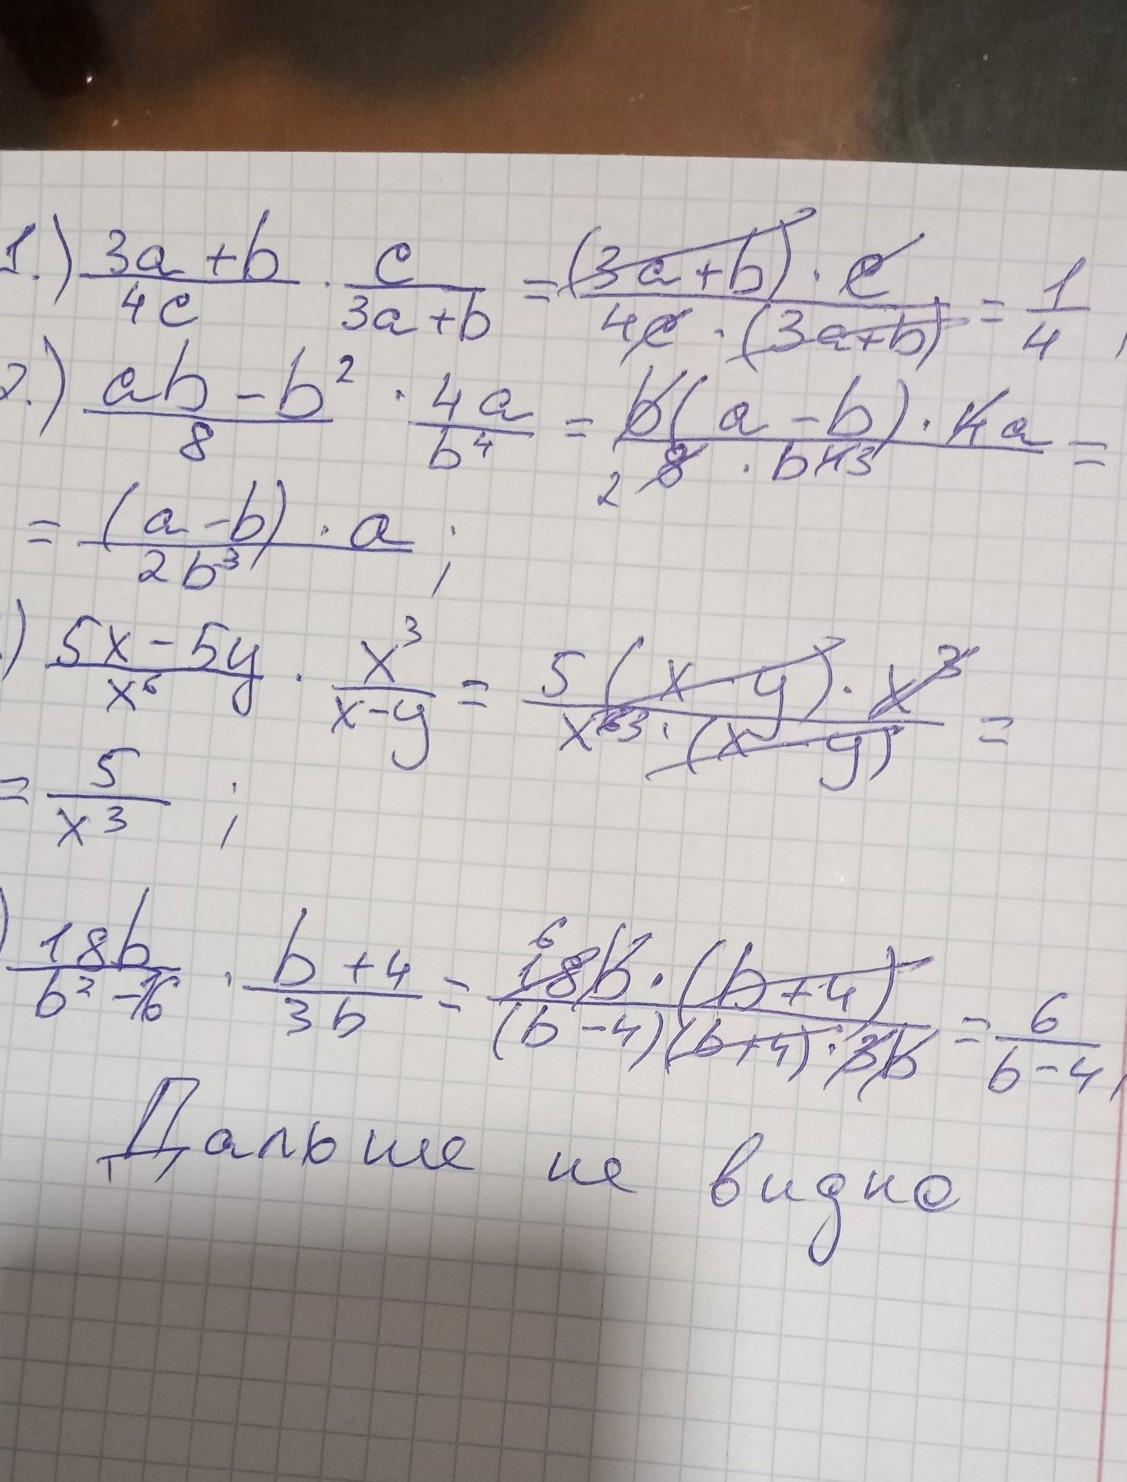 1.) (3a+b)/(4c) · c/(3a+b) = ((3a+b)·c)/(4c·(3a+b)) = 1/4,
2.) (ab-b²)/8 · 4a/b⁴ = (b(a-b)·4a)/(8·b⁴) =
= ((a-b)·a)/(2b³) ;
) (5x-5y)/x⁶ · x³/(x-y) = (5(x-y)·x³)/(x⁶·(x-y)) =
= 5/x³ ;
) 18b/(b²-16) · (b+4)/(3b) = (18b·(b+4))/((b-4)(b+4)·3b) = 6/(b-4),
Дальше не видно